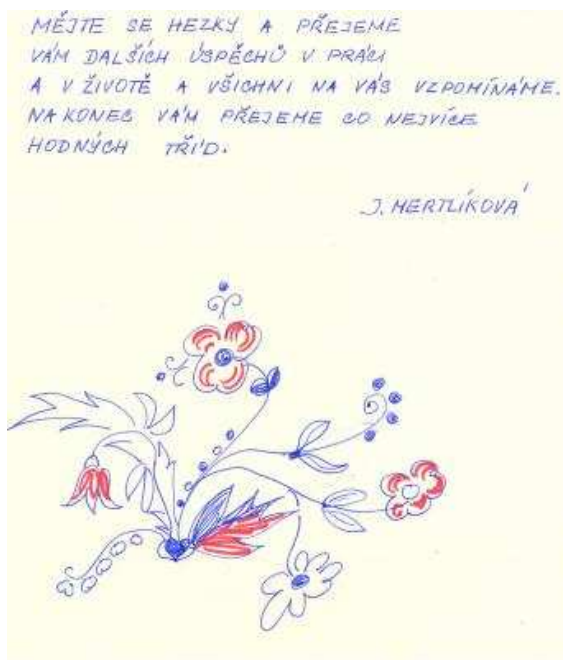 MĚJTE SE HEZKY A PŘEJEME
VÁM DALŠÍCH ÚSPĚCHŮ V PRÁCI
A V ŽIVOTĚ A VŠICHNI NA VÁS VZPOMÍNÁME.
NA KONEC VÁM PŘEJEME CO NEJVÍCE
HODNÝCH TŘÍD.
J. MERTLÍKOVÁ